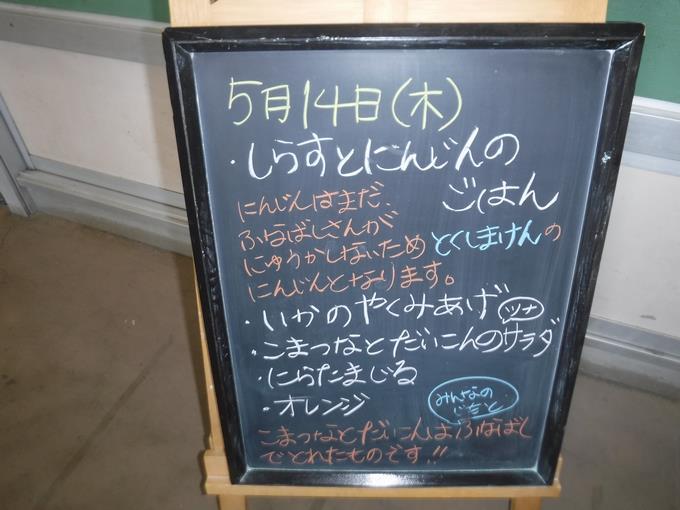 5月14日(木)
・しらすとにんじんの
ごはん
にんじんはまだ、
ふなばしさんが
にゅうかしないため とくしまけんの
にんじんとなります。
・いかのやくみあげ ツナ
・こまつなとだいこんのサラダ
・にらたまじる
・オレンジ
みんなの
こまつなとだいこんはふなばし
でとれたものです!!